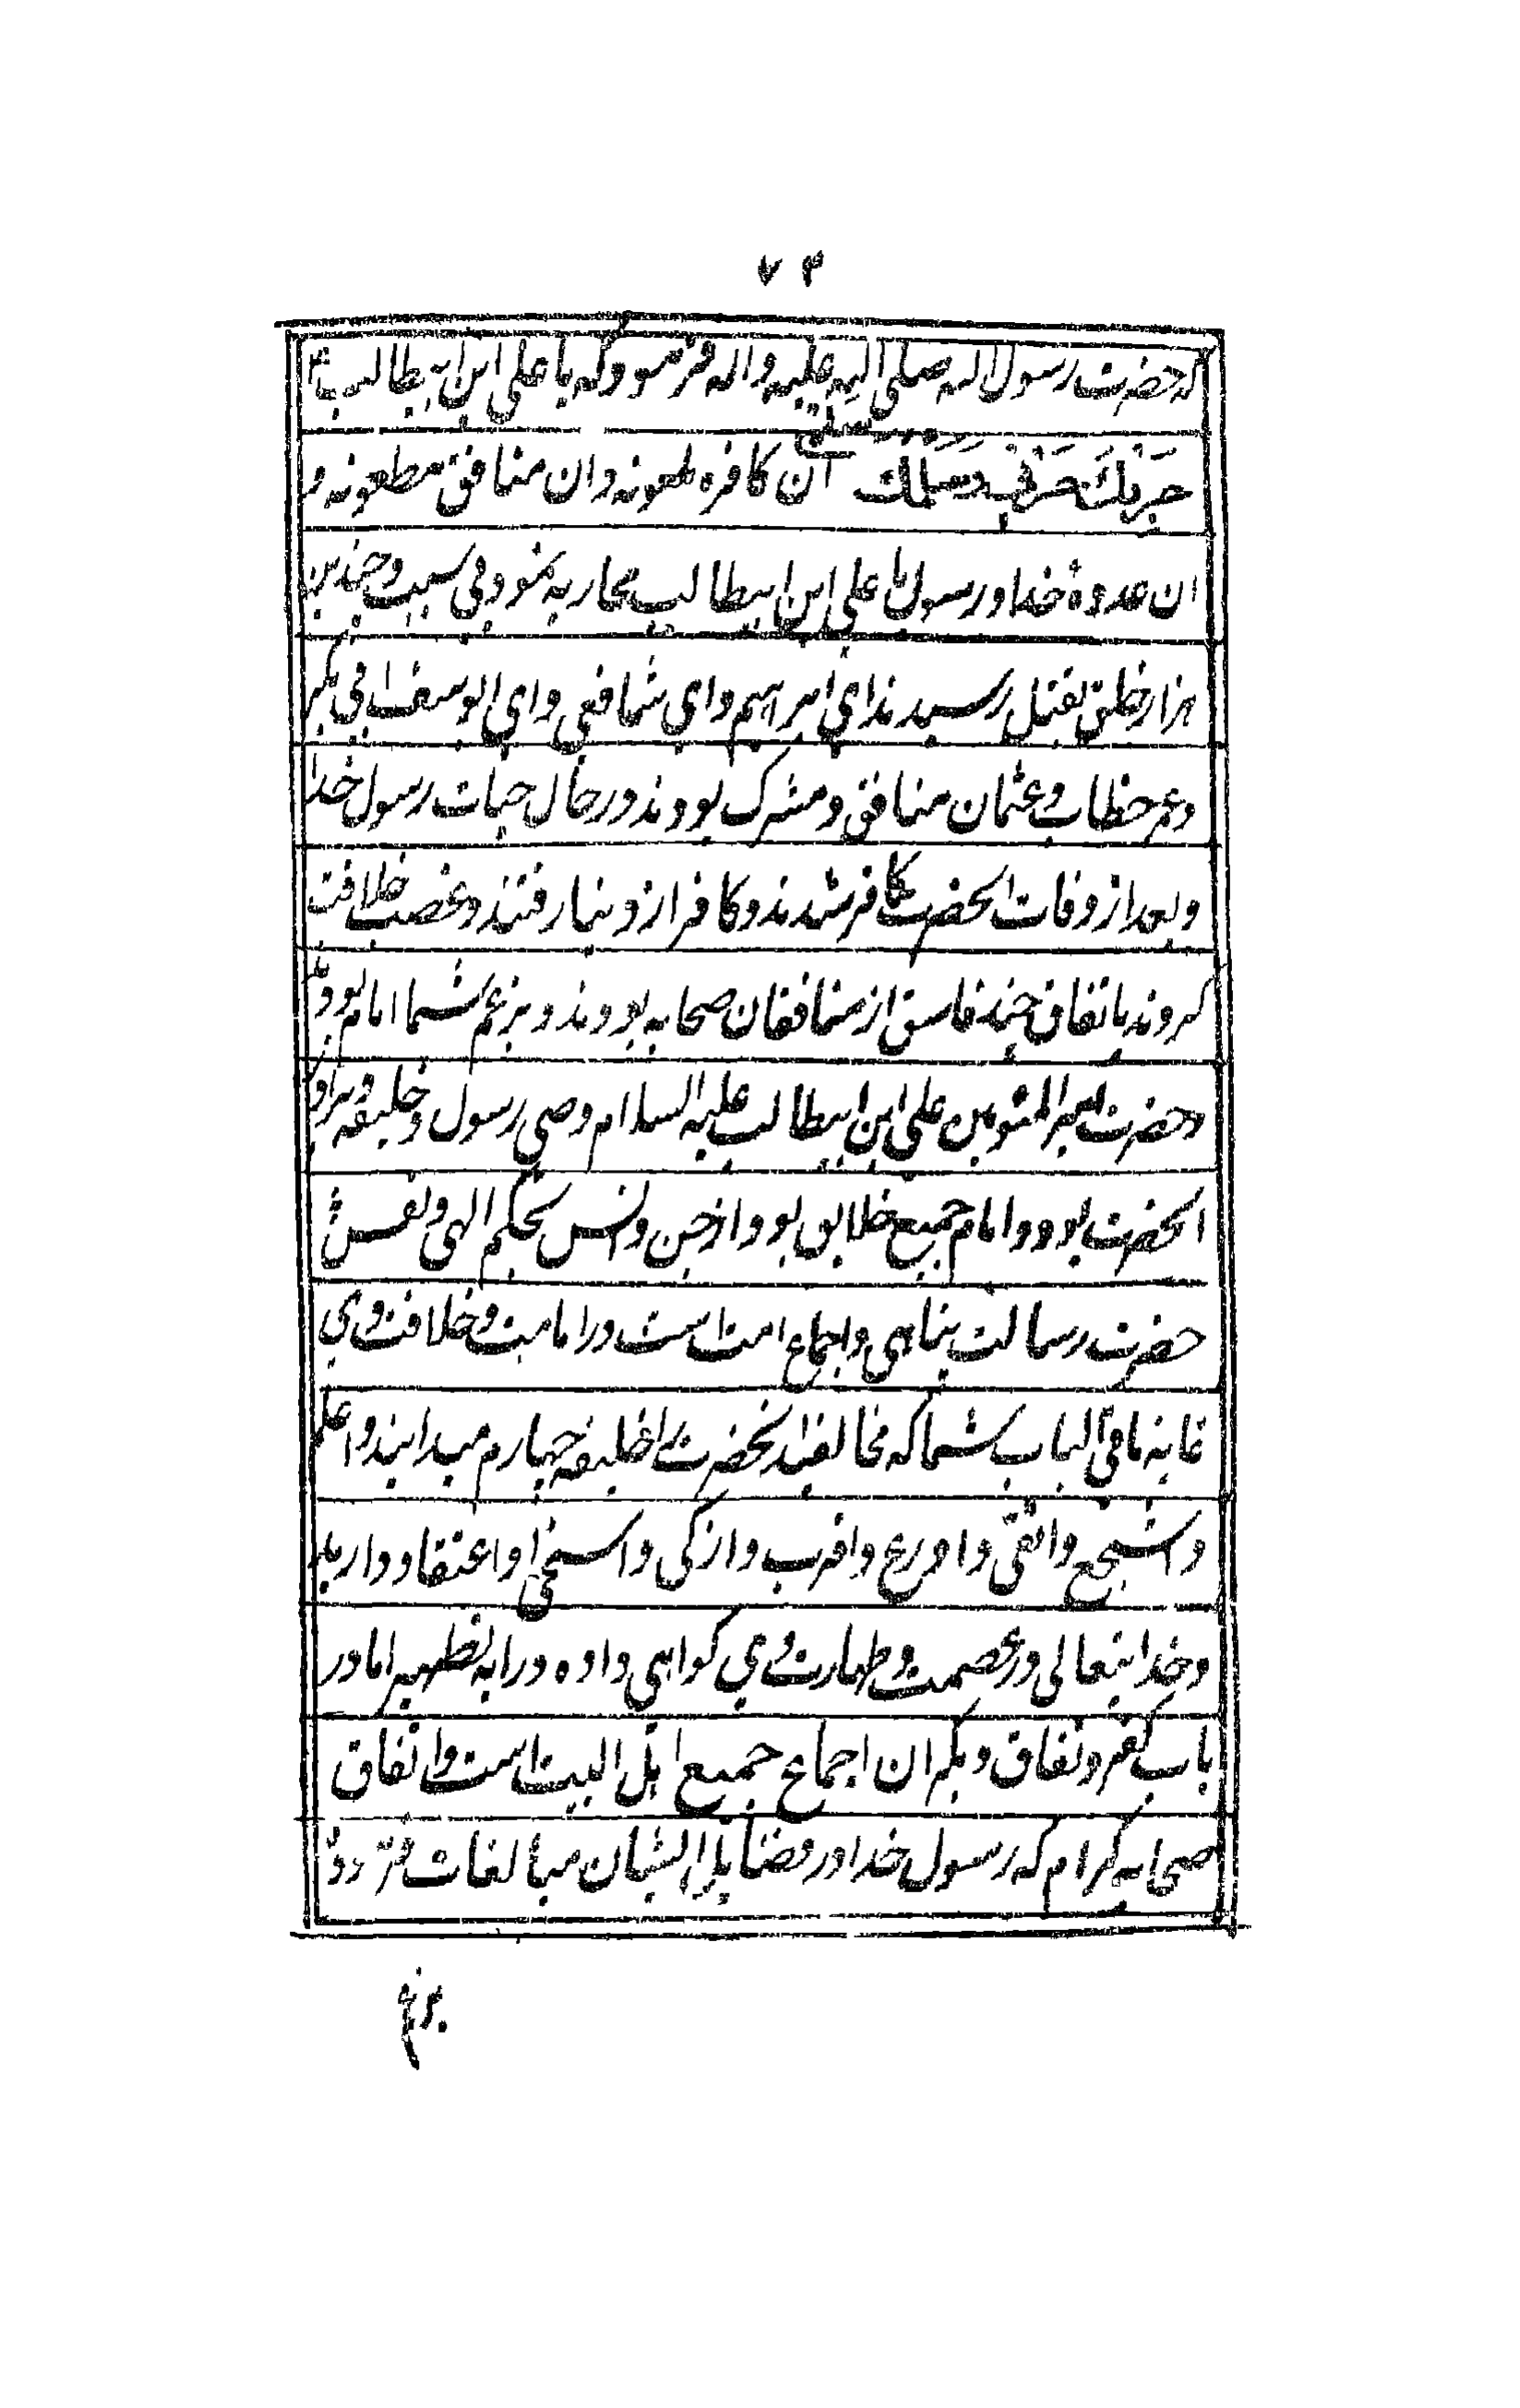 ۷۳
که حضرت رسول الله صلی الله علیه واله فرمود که یا علی ابن ابیطالب
حربک حربی وسلمک سلمی آن کافره ملعونه وان منافق مطعونه و
ان عدوهٔ خدا ورسول با علی ابن ابیطالب محاربه نمود وبی سبب وچندین
هزار خلق بقتل رسیدند ای ابراهیم وای شافعی وای ابو یوسف ابی بکر
وعمر خطاب وعثمان منافق ومشرک بودند در حال حیات رسول خدا
وبعد از وفات انحضرت کافر شدند وکافر از دنیا رفتند وغصب خلافت
کردند باتفاق چند فاسق از منافقان صحابه بودند وبزعم شما امام بودند
وحضرت امیر المئومین علی ابن ابیطالب علیه السلام وصی رسول وخلیفه وبرادر
انحضرت بود وامام جمیع خلایق بود از جن وانس بحکم الهی ونفس
حضرت رسالت پناهی واجماع امت است در امامت وخلافت وی
غایة ما فی الباب شما که مخالفید انحضرت را خلیفه چهارم میدانید واعلم
واشجع واتقی واورع واقرب وازکی واسخی او اعتقاد دارید
وخدایتعالی در عصمت وطهارت وی کواهی داده در ایه تطهیر اما در
باب کفر ونفاق دیکران اجماع جمیع اهل البیت است واتفاق
صحابه کرام که رسول خدا در فضایل ایشان مبالغات